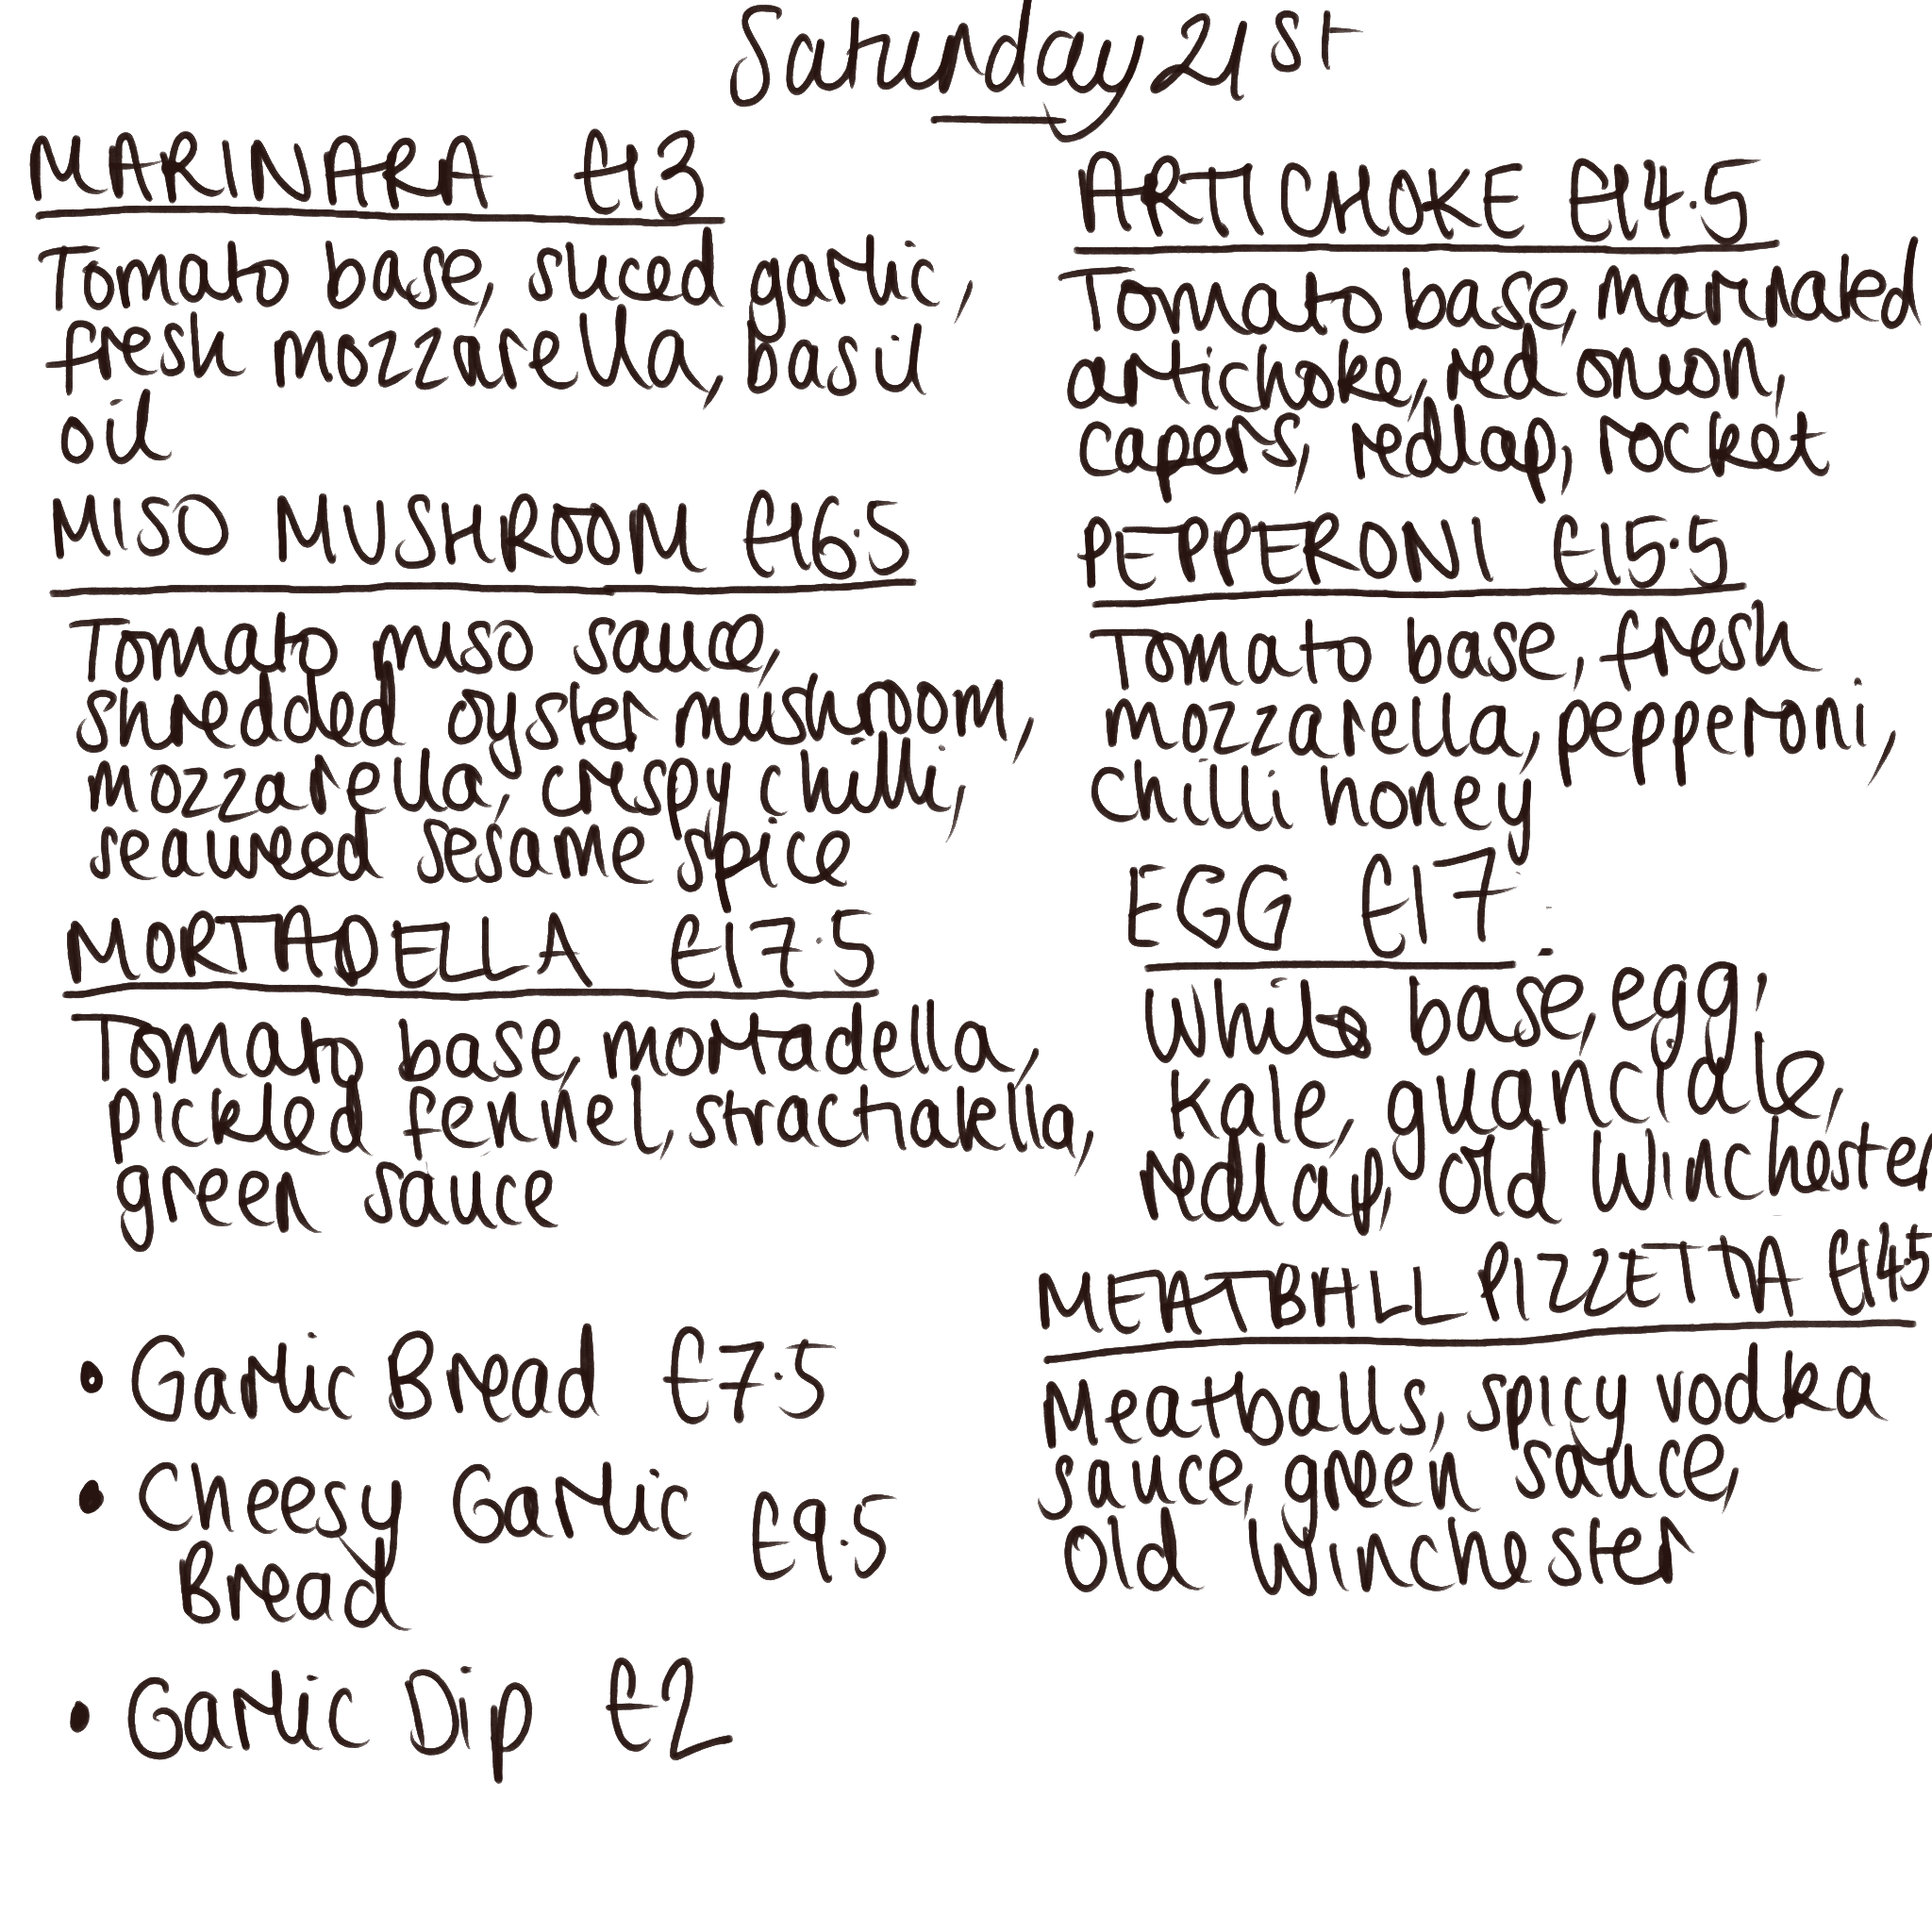 Saturday 21st
MARINARA £13
Tomato base, sliced garlic,
fresh mozzarella, basil
oil
MISO MUSHROOM £16.5
Tomato miso sauce,
shredded oyster mushroom,
mozzarella, crispy chilli,
seaweed sesame spice
MORTADELLA £17.5
Tomato base, mortadella,
pickled fennel, strachatella,
green sauce
• Garlic Bread £7.5
• Cheesy Garlic £9.5
Bread
• Garlic Dip £2
ARTICHOKE £14.5
Tomato base, marinated
artichoke, red onion,
capers, redlap, rocket
PEPPERONI £15.5
Tomato base, fresh
mozzarella, pepperoni,
chilli honey
EGG £17
White base, egg,
kale, guanciale,
redlap, old Winchester
MEATBALL PIZZETTA £14.5
Meatballs, spicy vodka
sauce, green sauce,
Old Winchester